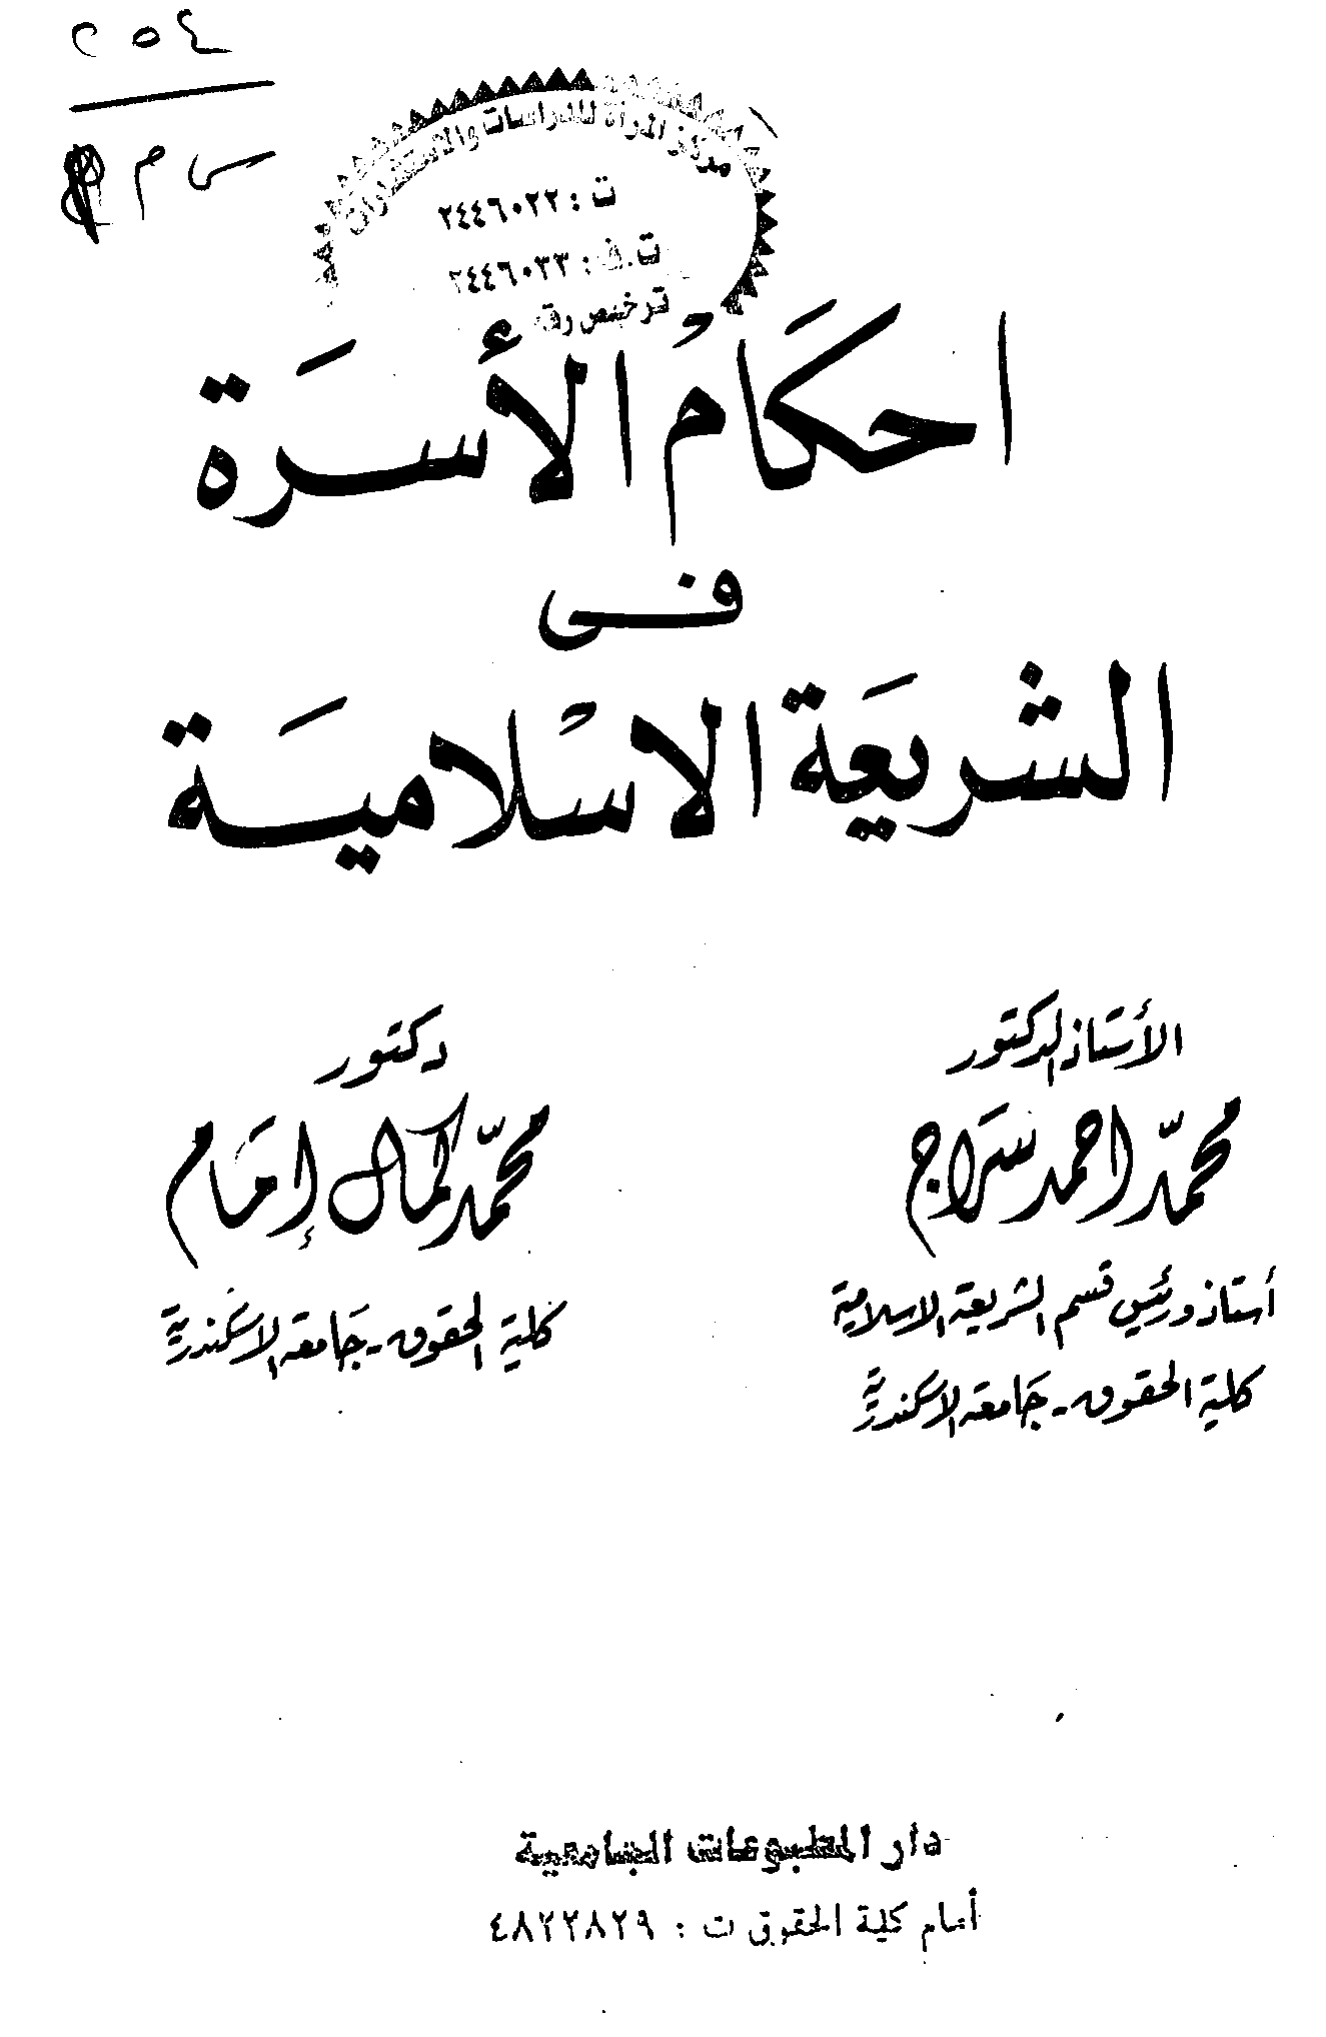 ٢٥٤
س م
مركز المرأة للدراسات والاستشارات
ت : ٢٤٤٦٠٢٢
ت.ف : ٢٤٤٦٠٣٣
ترخيص رقم
احكَامُ الأسرَة
فى
الشريعَة الاسْلاميَة
الأستاذ الدكتور
محمّد احمد سَراج
أستاذ ورئيس قسم الشريعة الاسلامية
كلية الحقوق - جَامعة الاسكندرية
دكتور
محمّد كمال إمَام
كلية الحقوق - جَامعة الاسكندرية
دار المطبوعات الجامعية
أمام كلية الحقوق ت : ٤٨٢٢٨٢٩